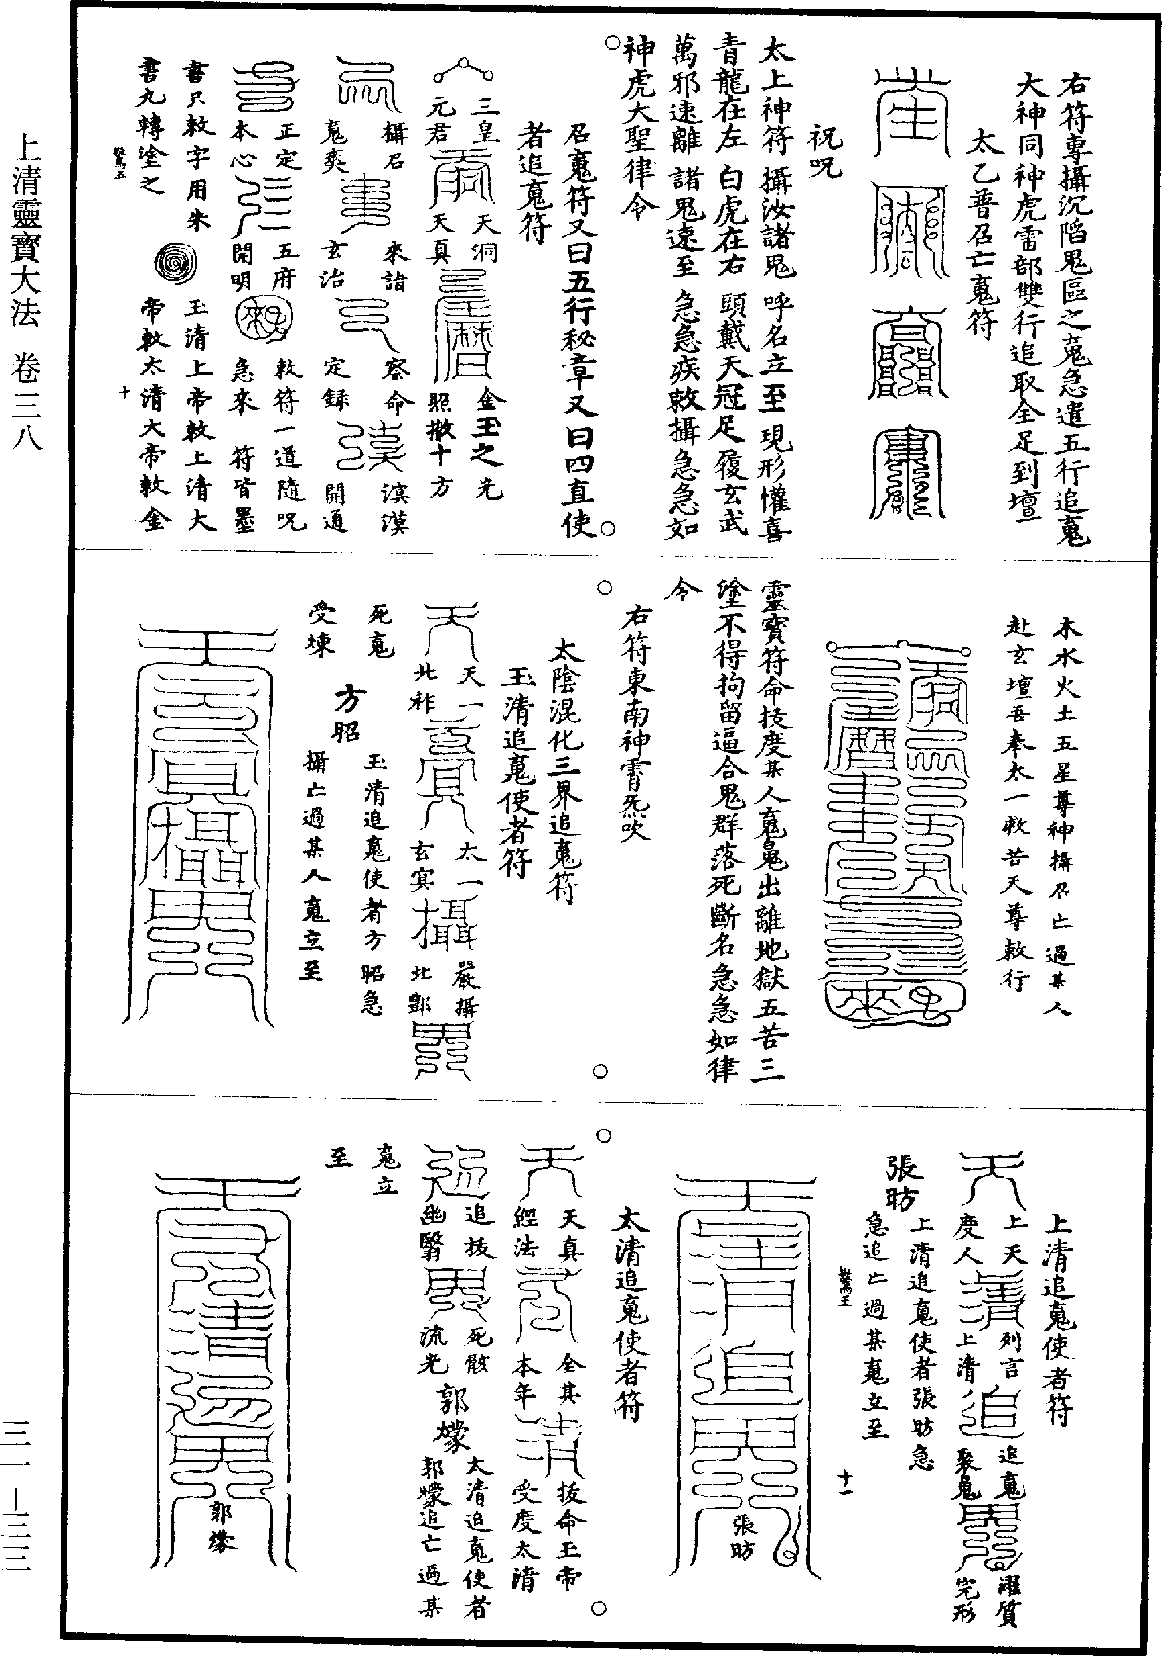 上清靈寶大法 卷三八
三一—三三
右符專攝沉陷鬼區之䰟急遣五行追䰟
大神同神虎雷部雙行追取全足到壇
太乙普召亡䰟符
祝咒
太上神符 攝汝諸鬼 呼名立至 現形懽喜
青龍在左 白虎在右 頭戴天冠 足履玄武
萬邪速離 諸鬼速至 急急疾敕攝急急如
神虎大聖律令
召䰟符又曰五行秘章又曰四直使
者追䰟符
三皇
元君
天洞
天真
金玉之光
照徹十方
攝召
䰟爽
來詣
玄治
察命
定錄
溟漠
開通
正定
本心
五府
開明
敕符一道隨咒
急來 符皆墨
書只敕字用朱
書丸轉塗之
玉清上帝敕上清大
帝敕太清大帝敕金
十
木水火土五星尊神攝召亡過某人
赴玄壇吾奉太一救苦天尊敕行
靈寶符命拔度某人䰟魄出離地獄五苦三
塗不得拘留逼合鬼群落死斷名急急如律
令
右符東南神霄炁吹
太陰混化三界追䰟符
玉清追䰟使者符
天一
北祚
太一
玄冥
嚴攝
北酆
死䰟
受煉
方昭
玉清追䰟使者方昭急
攝亡過某人䰟立至
上清追䰟使者符
上天
度人
列言
上清
追䰟
聚魄
濯質
完形
張昉
上清追䰟使者張昉急
急追亡過某䰟立至
十一
張昉
太清追䰟使者符
天真
經法
全其
本年
拔命玉帝
受度太清
追拔
幽翳
死骸
流光
郭㜫
太清追䰟使者
郭㜫追亡過某
䰟立
至
郭㜫